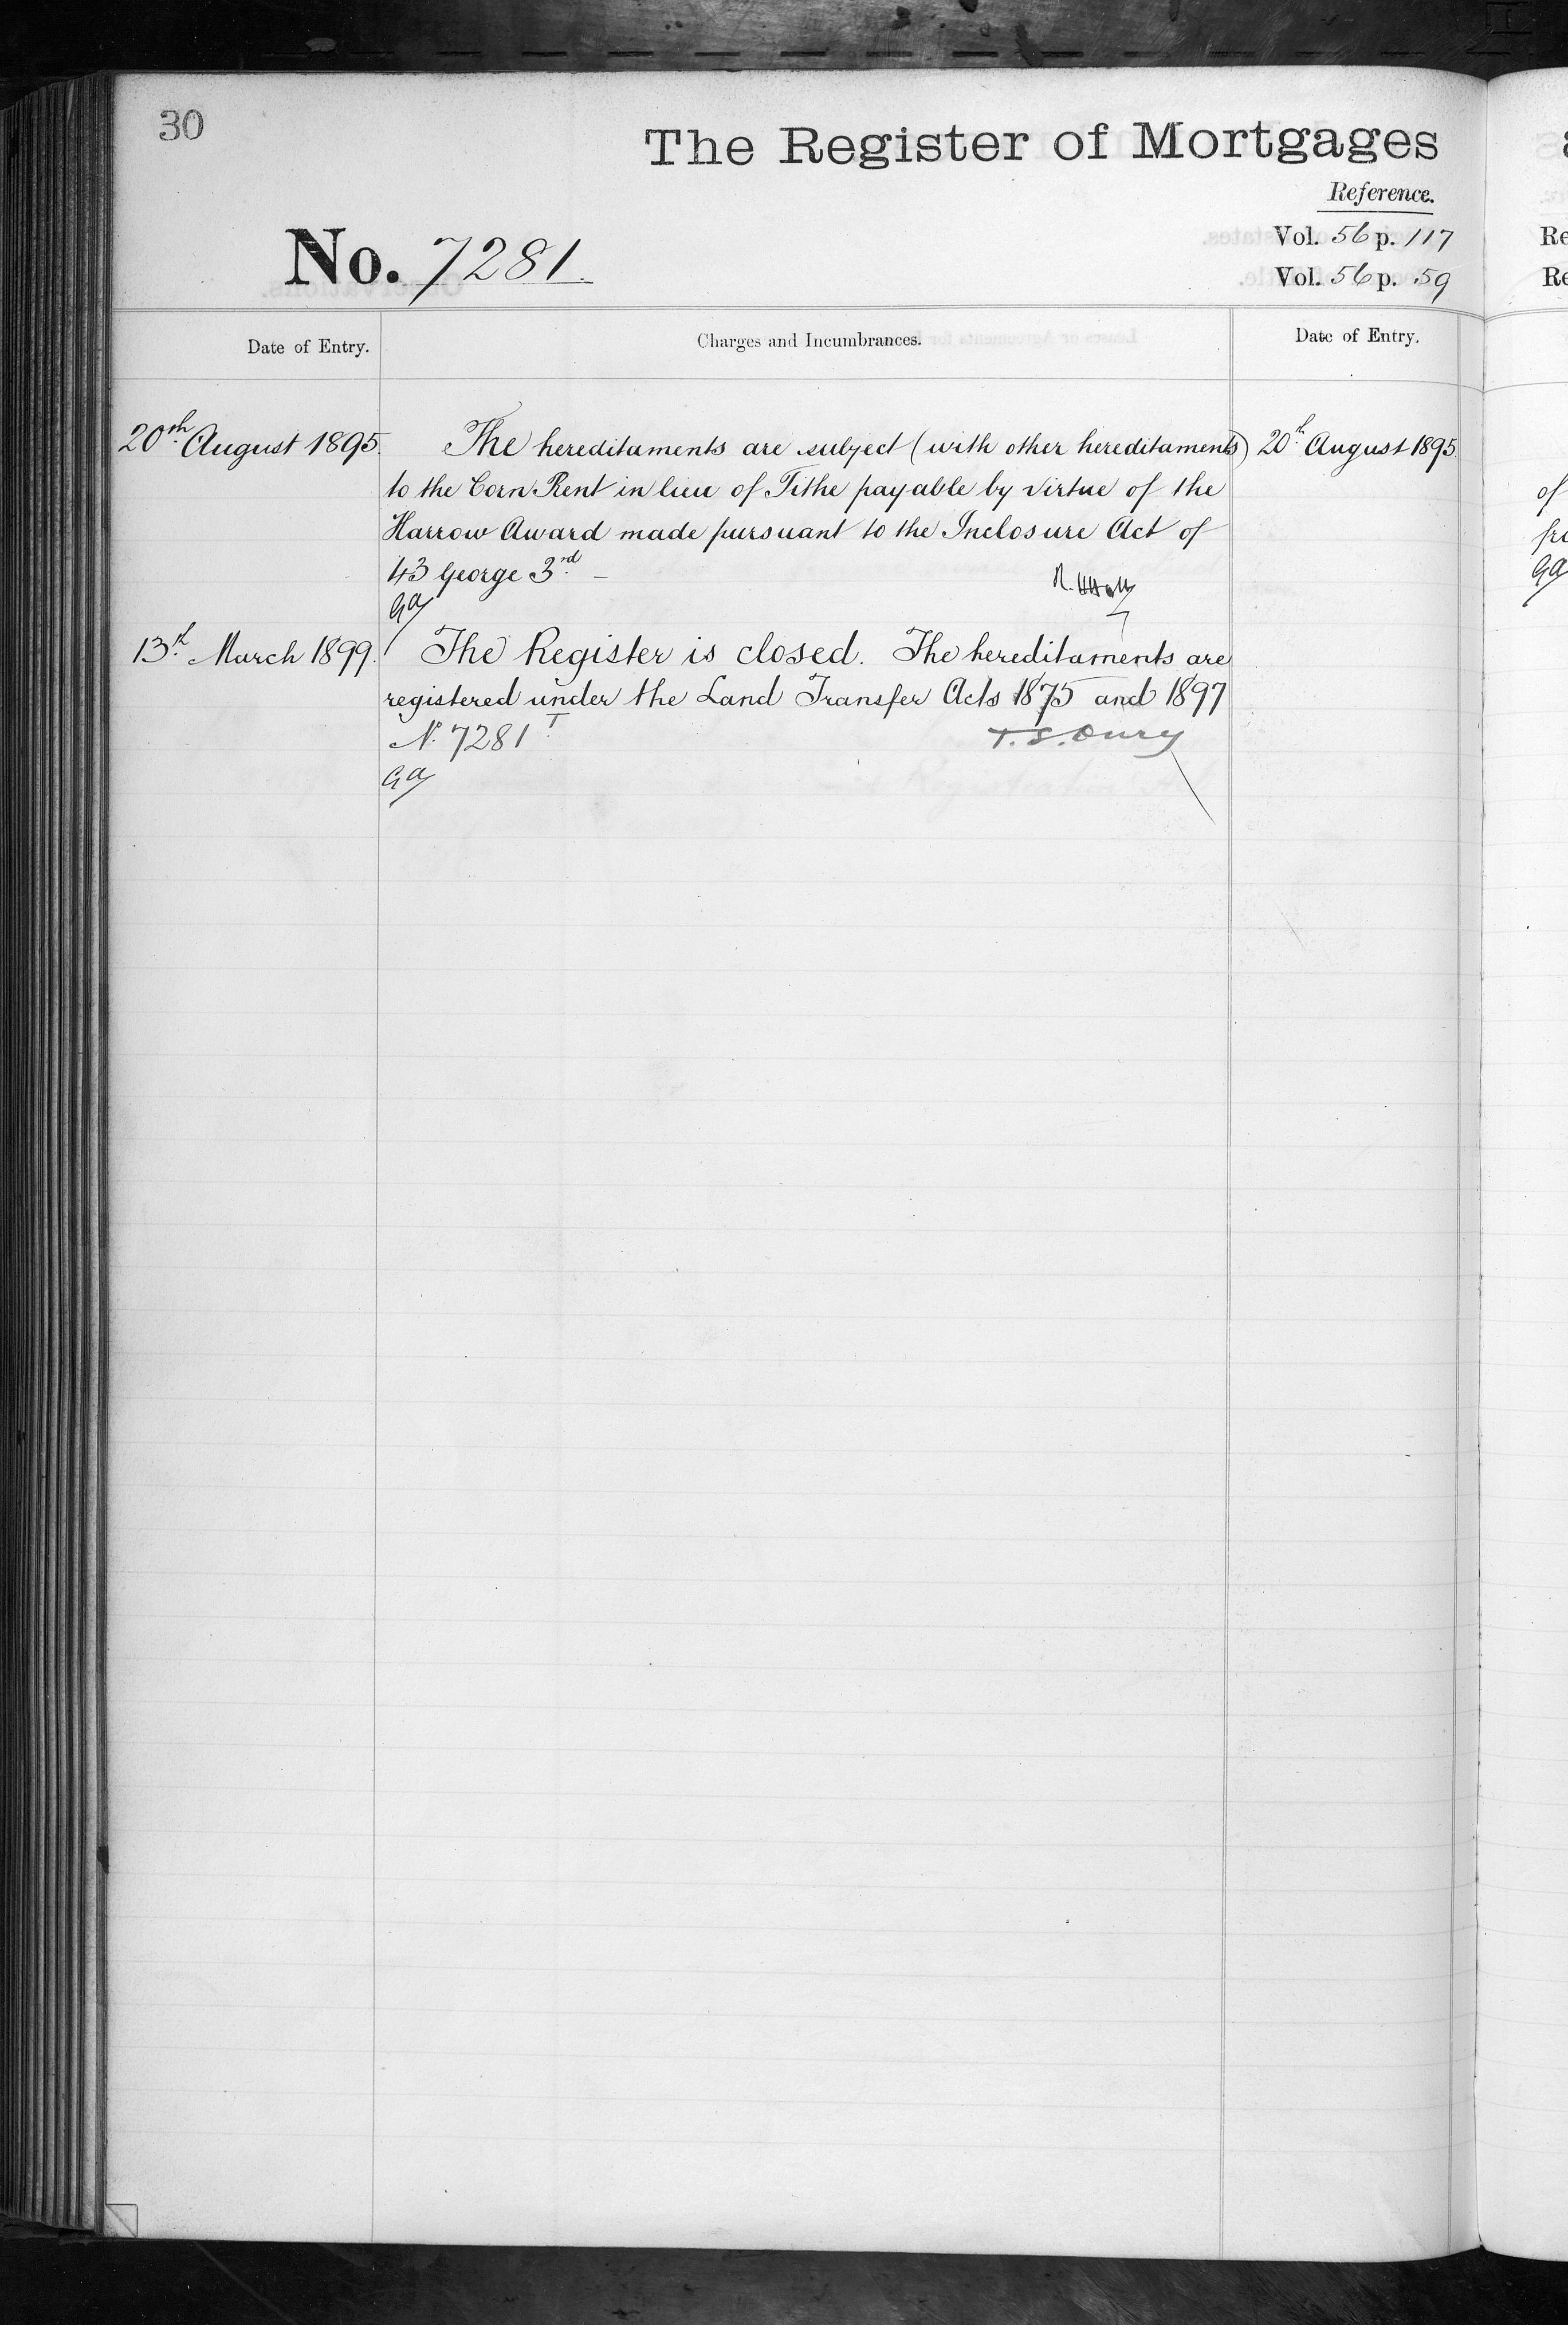 30
The Register of Mortgages
Reference.
No. 7281.
Vol. 56 p. 117
Vol. 56 p. 59
Date of Entry.
Charges and Incumbrances.
Date of Entry.
20th August 1895.
The hereditaments are subject (with other hereditaments)
to the Corn Rent in lieu of Tithe payable by virtue of the
Harrow Award made pursuant to the Inclosure Act of
43 George 3rd. –
GA
20th August 1895.
13th March 1899.
The Register is closed. The hereditaments are
registered under the Land Transfer Acts 1875 and 1897
No. 7281 T.
T. S. Oury
GA
Re
Re
of
GA